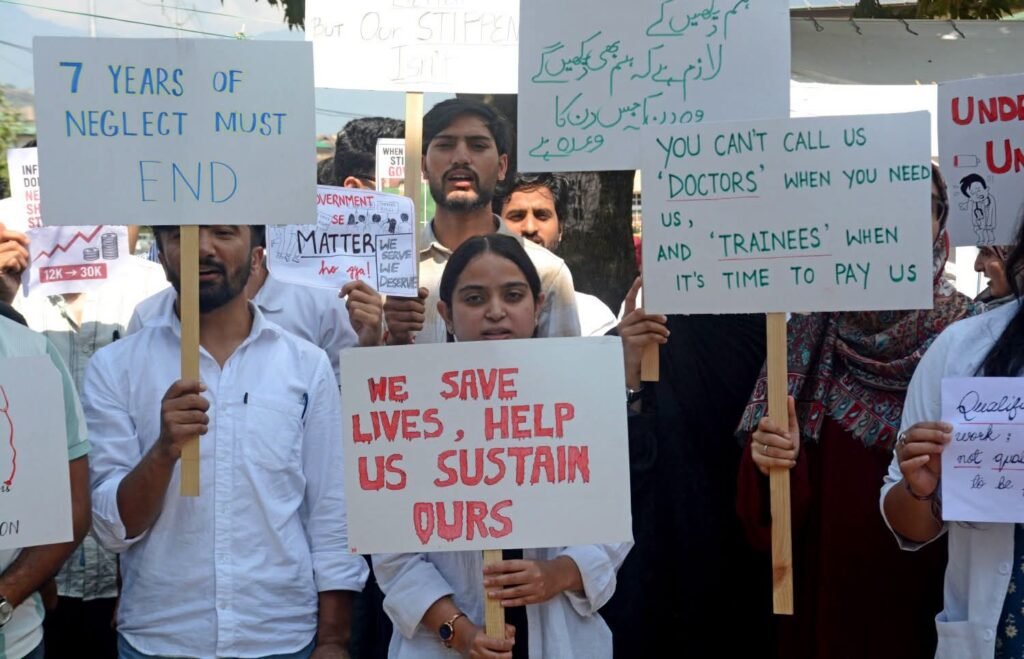 7 YEARS OF
NEGLECT MUST
END
BUT OUR STIPPEN
Isn't
ہم دیکھیں گے
لازم ہے کہ ہم بھی دیکھیں گے
وہ دن کہ جس دن کا
وعدہ ہے
YOU CAN'T CALL US
'DOCTORS' WHEN YOU NEED
US,
AND 'TRAINEES' WHEN
IT'S TIME TO PAY US
UNDE
UN
12K → 30K
WHEN
MATTER
ho gya!
WE
SERVE
WE
DESERVE
WE SAVE
LIVES, HELP
US SUSTAIN
OURS
Qualif
work;
not qua
to be
ON